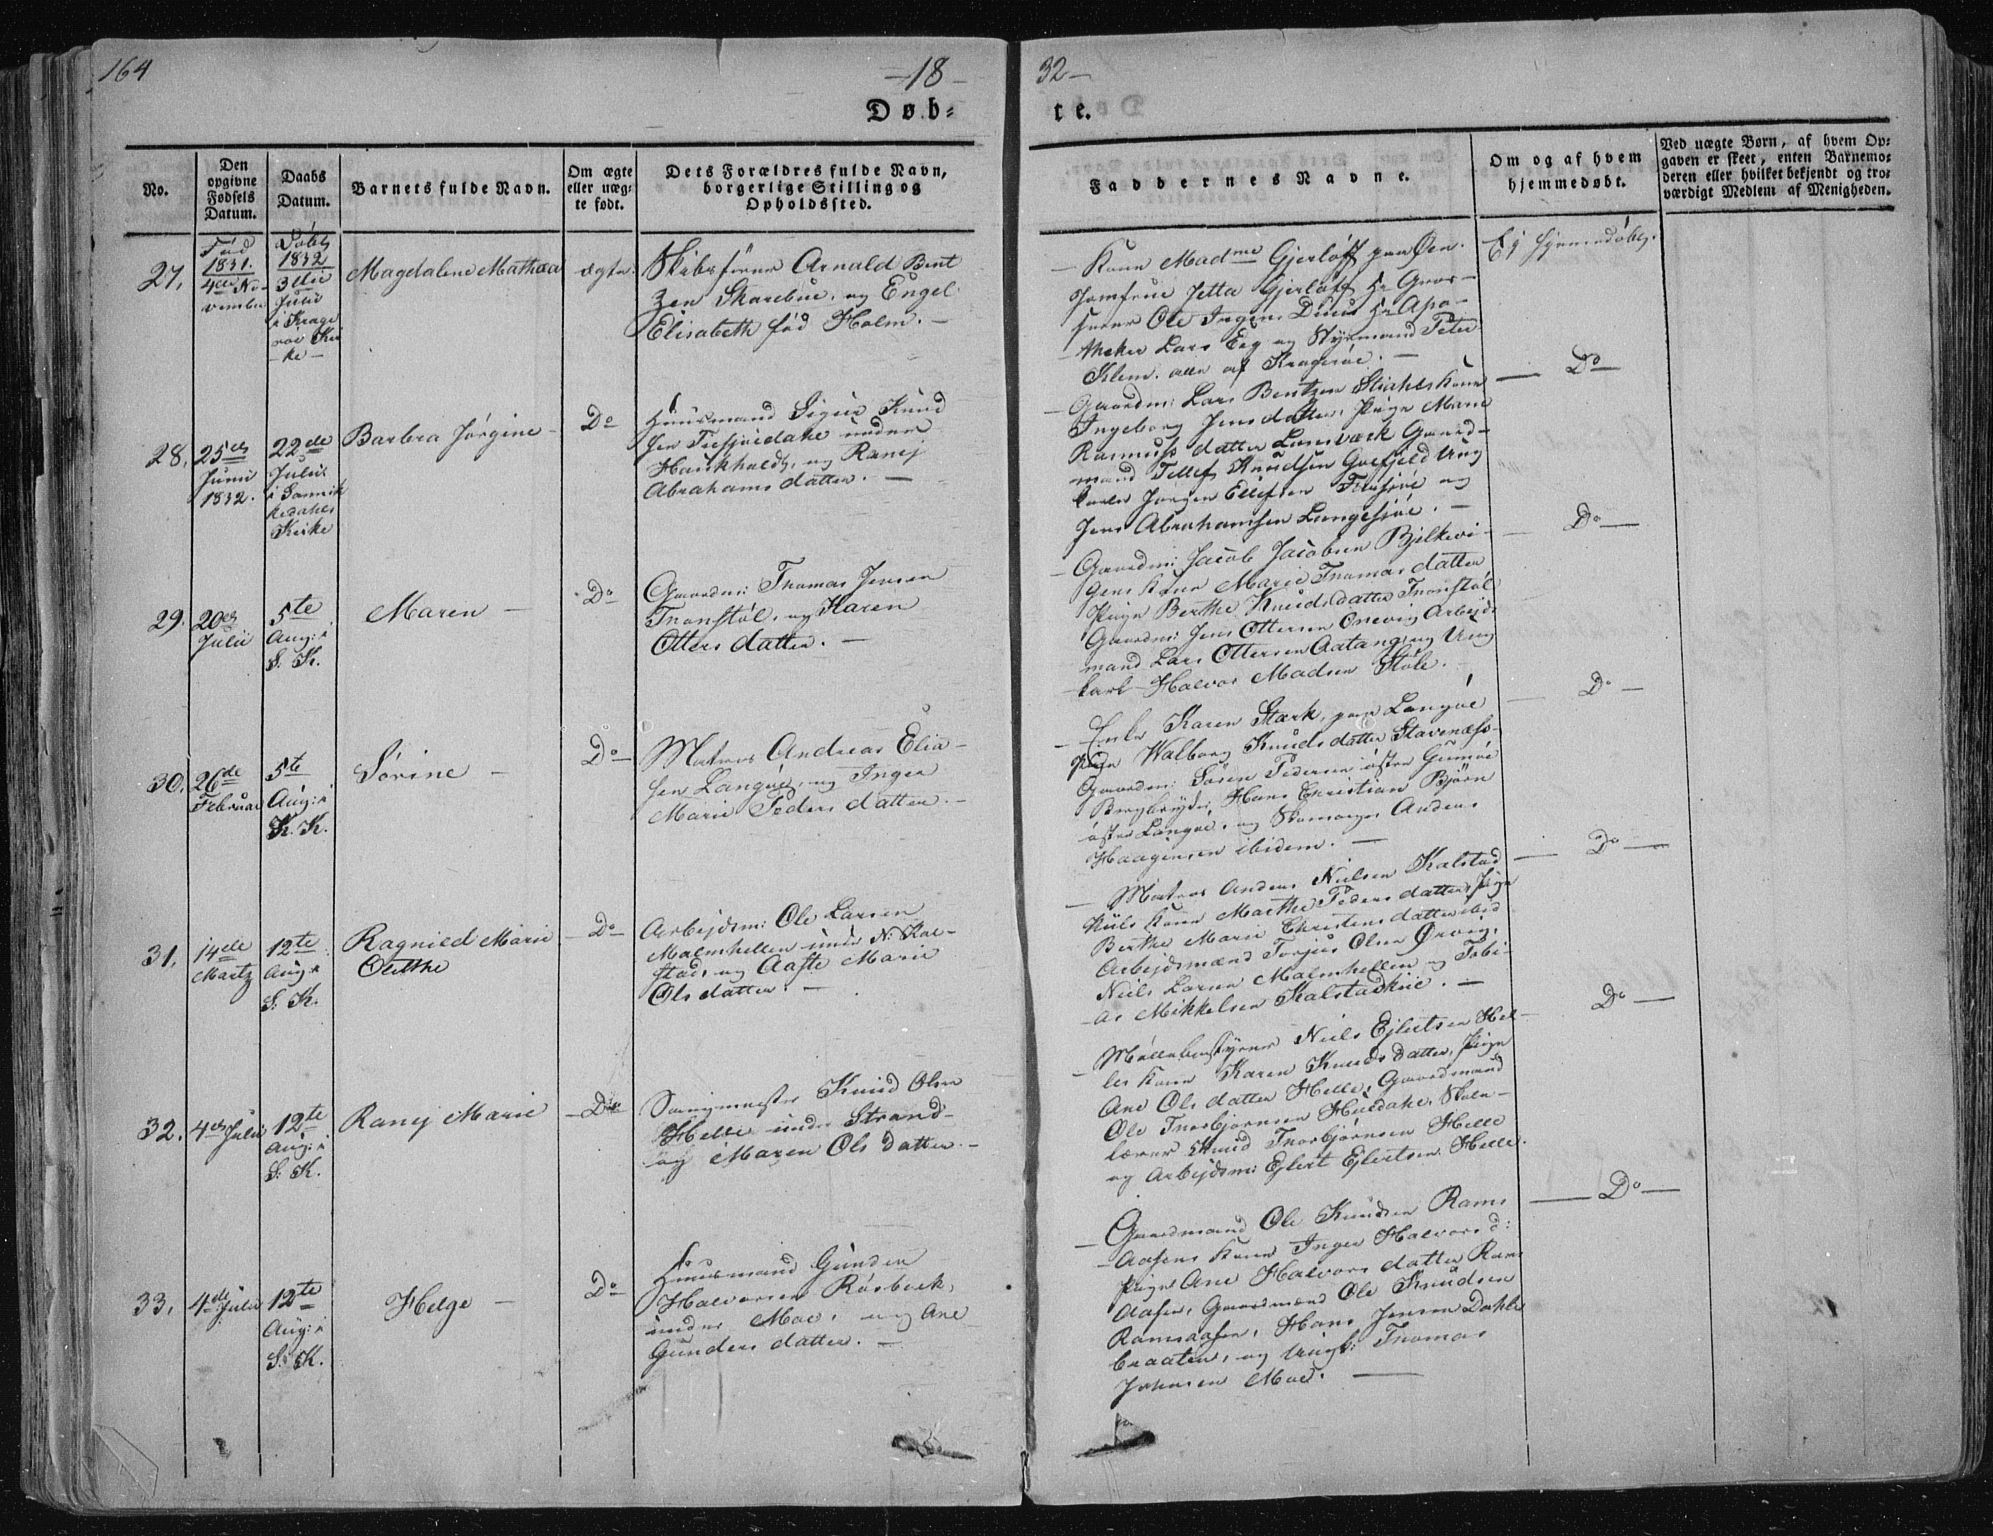 164
-18-
32-
Døb-
te.
No.
Den opgivne Fødsels Datum.
Daabs Datum.
Barnets fulde Navn.
Om ægte eller uæg-te født.
Dets Forældres fulde Navn, borgerlige Stilling og Opholdssted.
Faddernes Navne.
Om og af hvem hjemmedøbt.
Ved uægte Børn, af hvem Op-gaven er skeet, enten Barnemo-deren eller hvilket bekjendt og tro-værdigt Medlem af Menigheden.
27.
Fød
1831.
4de No-
vember
Døbt
1832
3die
Julii
i Krage
røe Kir
ke
Magdalene Mathea
ægte.
Skibsfører Arnald Bent
zen Skarebue, og Engel
Elisabeth fød Holm. -
- Kone Madme Gjerløff paa Øen.
Jomfrue Jetta Gjerløff Hr Gros-
serer Ole Irgens Duus Hr Apo-
theker Lars Eeg og Styrmand Peter
Klem. alle af Kragerøe. -
Ej hjemmedøbt.
28.
25de
Junii
1832.
22de
Julii
i Sannik
kedahls
Kirke
Barbra Jørgine -
Do
Huusmand Sigur Knud
sen under
og Ranej
Abrahams datter. -
Gaardm: Lars Bentzen Kone
Ingeborg Jens datter, Pige Marie
Rasmuss datter Lunværk Gaard-
mand Tellef Knudsen Ung
karle Jørgen Ellefsen og
Jens Abrahamsen Langesjøe. -
- Do
29.
20de
Julii
5te
Aug: i
S. K.
Maren -
Do
Gaardm: Thomas Jensen
Tronstøl, og Karen
Otters datter. -
Gaardm: Jacob Jacobsen Bjelkevi-
gens Kone Marie Thomas datter
Pige Berthe Knuds datter Tronstøl
Gaardm: Jens Ottersen Onevig Arbejds
mand Lars Ottersen Aatangen, og Ung
karl Halvor Madsen Støle.
- Do -
30.
26de
Februar
5te
Aug: i
K. K.
Sørine -
Do
Matros Andreas Elia-
sen Langøe, og Inger
Marie Peders datter. -
- Enke Karen Stærk, paa Langøe
Pige Walborg Knuds datter Stavenæss-
Gaardm: Søren Pedersen øster Gumøe
Hans Christian Bjørn
øster Langøe, og Skomager Anders
Haagensen ibidem. -
- Do -
31.
14de
Martz
12te
Aug: i
S. K.
Ragnild Marie
Oletthe
Do
Arbejdsm: Ole Larsen
Malmhellen under N: Kal-
stad, og Aaste Marie
Ols datter. -
- Matros Anders Nielsen Kalstad
Kiils Kone Marthe Peders datter, Pige
Berthe Marie Christens datter ibid
Arbejdsmænd Torjus Olsen Ørvig,
Niels Larsen Malmhellen og Tobi-
as Mikkelsen Kalstadkiil. -
- Do -
32.
4de Julii
12te
Aug: i
S. K.
Ranej Marie
Do
Saugmester Knud Olsen
Helle under Strand-
og Maren Ols datter. -
Møllebestyrer Niels Ejlertsen Hel-
les Kone Karen Knuds datter, Pige
Ane Ols datter Helle, Gaardmand
Ole Thorbjørnsen Huusdahl, Skole-
lærer Knud Thorbjørnsen Helle
og Arbejdsm: Ejlert Ejlertsen Helle.
Do -
33.
4de Julii
12te
Aug: i
S. K.
Helge -
Do
Huusmand Gunder
Halvorsen Røsbæk,
under Moe, og Ane
Gunders datter. -
- Gaardmand Ole Knudsen Rams
Aasens Kone Inger Halvors d:
Pige Ane Halvors datter Rams
Aasen, Gaardmænd Ole Knudsen
Ramsaasen, Hans Jensen Dahls
braaten, og Ungk: Thomas
Johnsen Moe. -
- Do -